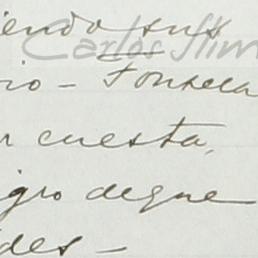 iendo sus
Carlos Slim
io - Fonseca
r cuesta,
igro de que
des -